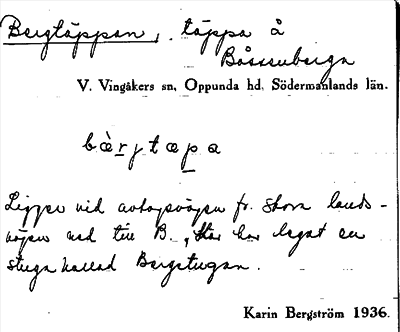 Bergtäppan, täppa å
Båsenberga
V. Vingåkers sn, Oppunda hd, Södermanlands län.
bæ̀rjtæpa
Ligger vid avtagsvägen fr. stora lands-
vägen ned till B., Här har legat en
stuga kallad Bergstugan.
Karin Bergström 1936.